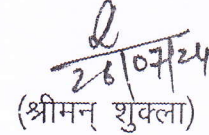 26/07/24
(श्रीमन् शुक्ला)